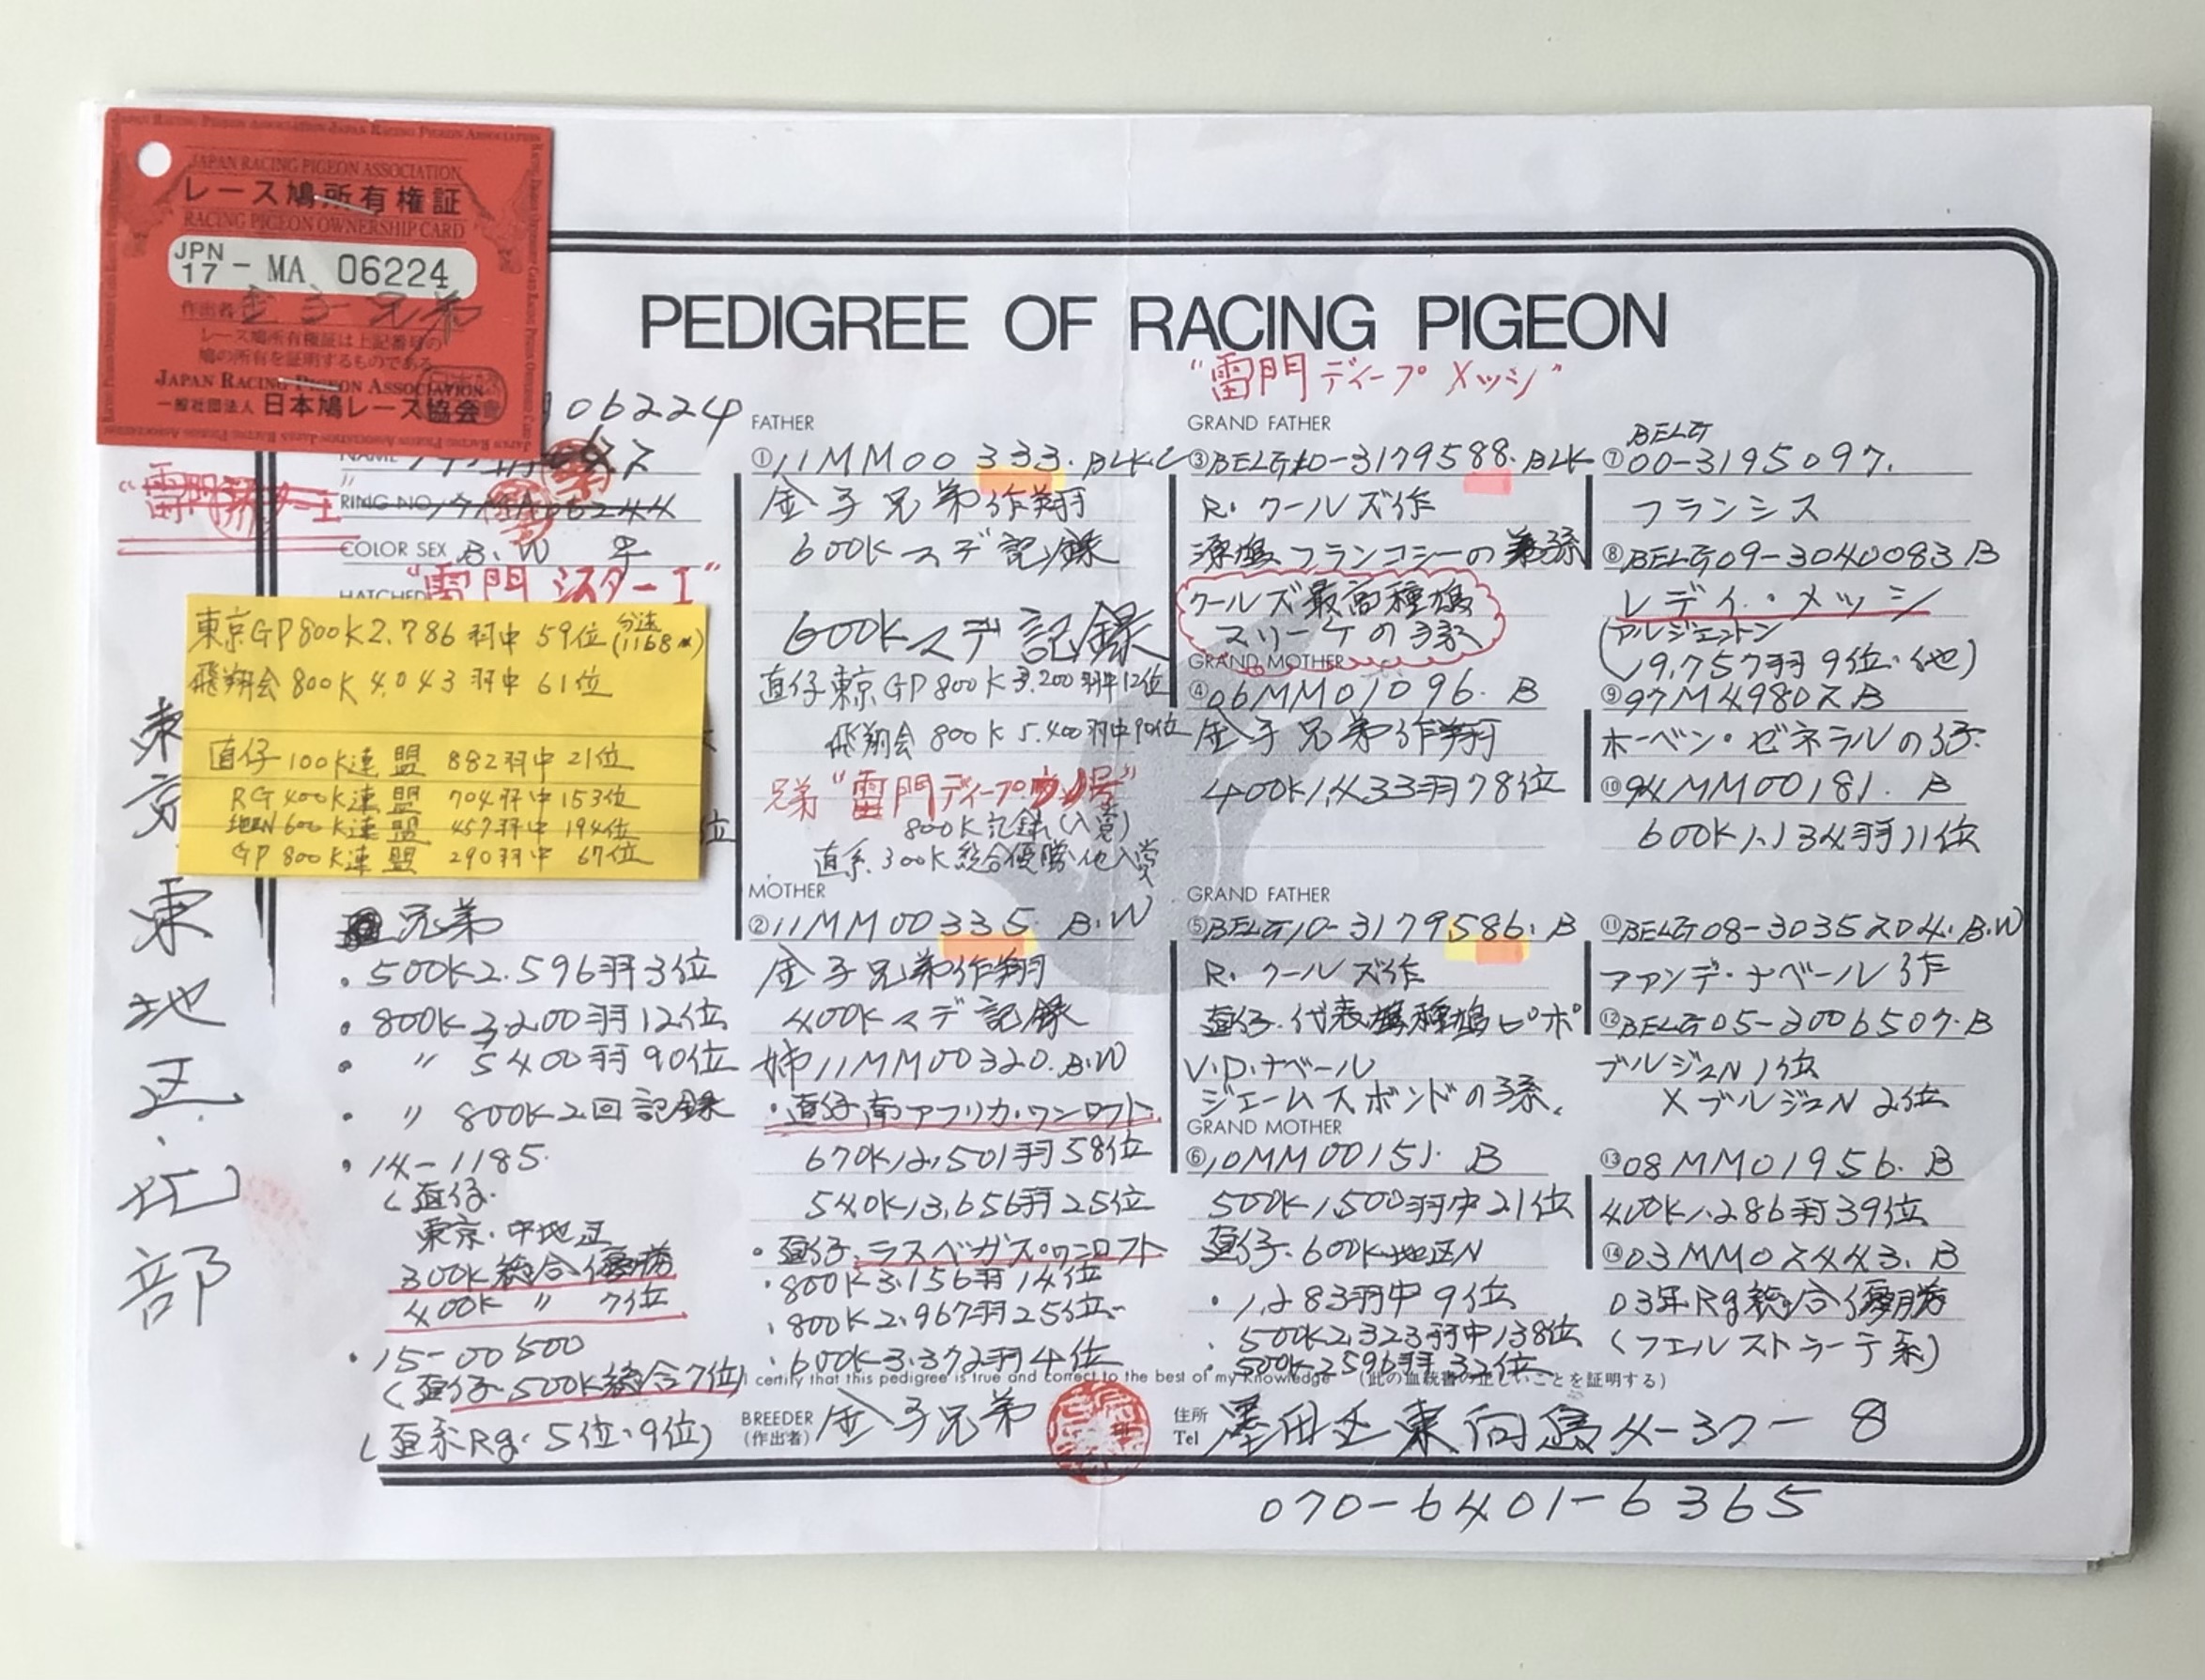 JAPAN RACING PIGEON ASSOCIATION
レース鳩所有権証
RACING PIGEON OWNERSHIP CARD
JPN
17 - MA 06224
作出者 金子兄弟
レース鳩所有権証は上記番号の
鳩の所有を証明するものである
JAPAN RACING PIGEON ASSOCIATION
一般社団法人 日本鳩レース協会
PEDIGREE OF RACING PIGEON
"雷門ディープメッシ"
06224
NAME
RING NO.
COLOR SEX B.W ♀
"雷門シスターエ"
HATCHED
東京GP800K2.786羽中59位(分速1168m)
飛翔会800K4,043羽中61位
直仔100K連盟 882羽中21位
RG400K連盟 704羽中153位
地区N600K連盟 457羽中194位
GP800K連盟 290羽中67位
位
東京東地区.北部
兄弟
・500K2.596羽3位
・800K3,200羽12位
・〃 5400羽90位
・〃 800K2回記録
・14-1185.
(直仔.
東京.中地区
300K総合優勝
400K 〃 7位
・15-00500
(直仔.500K総合7位)
(直系Rg.5位.9位)
FATHER
①11MM00333.BLKC
金子兄弟作翔
600Kマデ記録
600Kマデ記録
直仔東京GP800K3,200羽中12位
飛翔会800K5.400羽中90位
兄弟"雷門ディープ
800K記録(入賞)
直系.300K総合優勝.他入賞
MOTHER
②11MM00335.B.W
金子兄弟作翔
400Kマデ記録
姉11MM00320.B.W
・直仔南アフリカ・ワンロフト
670K12,501羽58位
540K13,656羽25位
・直仔.ラスベガス・ワンロフト
・800K3.156羽14位
・800K2.967羽25位
・600K3.372羽4位
GRAND FATHER
③BELG10-3179588.BLK
R.クールズ作
源鳩フランコシーの
クールズ最高種鳩
マリーケの孫
GRAND MOTHER
④06MM01096.B
金子兄弟作翔
400K1,433羽78位
GRAND FATHER
⑤BELG10-3179586.B
R.クールズ作
直仔.代表種鳩ピポ
V.D.ナベール
ジェームスボンドの孫.
GRAND MOTHER
⑥10MM00151.B
500K1,500羽中21位
直仔.600K地区N
・1,283羽中9位
・500K2,323羽中138位
・500K2596羽32位
BELG
⑦00-3195097.
フランシス
⑧BELG09-3040083B
レディ・メッシ
(アルジェントン
19,757羽9位.他)
⑨97M49802B
ホーベン・ゼネラルの孫.
⑩94MM00181.B
600K1,134羽11位
⑪BELG08-3035204.B.W
ファンデ・ナベール作
⑫BELG05-3006507.B
ブルジェN1位
Xブルジェン2位
⑬08MM01956.B
400K1,286羽39位
⑭03MM02443.B
03年Rg総合優勝
(フェルストラーテ系)
I certify that this pedigree is true and correct to the best of my knowledge (此の血統書の正しいことを証明する)
BREEDER
(作出者) 金子兄弟
住所
Tel 墨田区東向島4-37-8
070-6401-6365